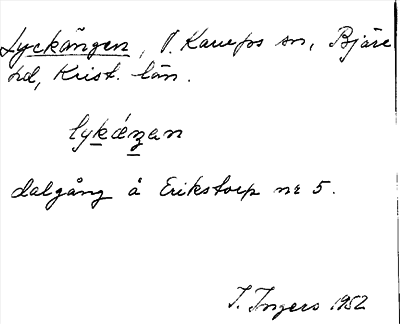 Lyckängen, V. Karups sn, Bjäre
hd, Krist. län.
lykǽŋan
dalgång å Erikstorp nr 5.
I. Ingers 1952